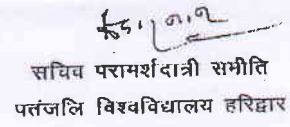 सचिव परामर्शदात्री समीति
पतंजलि विश्वविद्यालय हरिद्वार